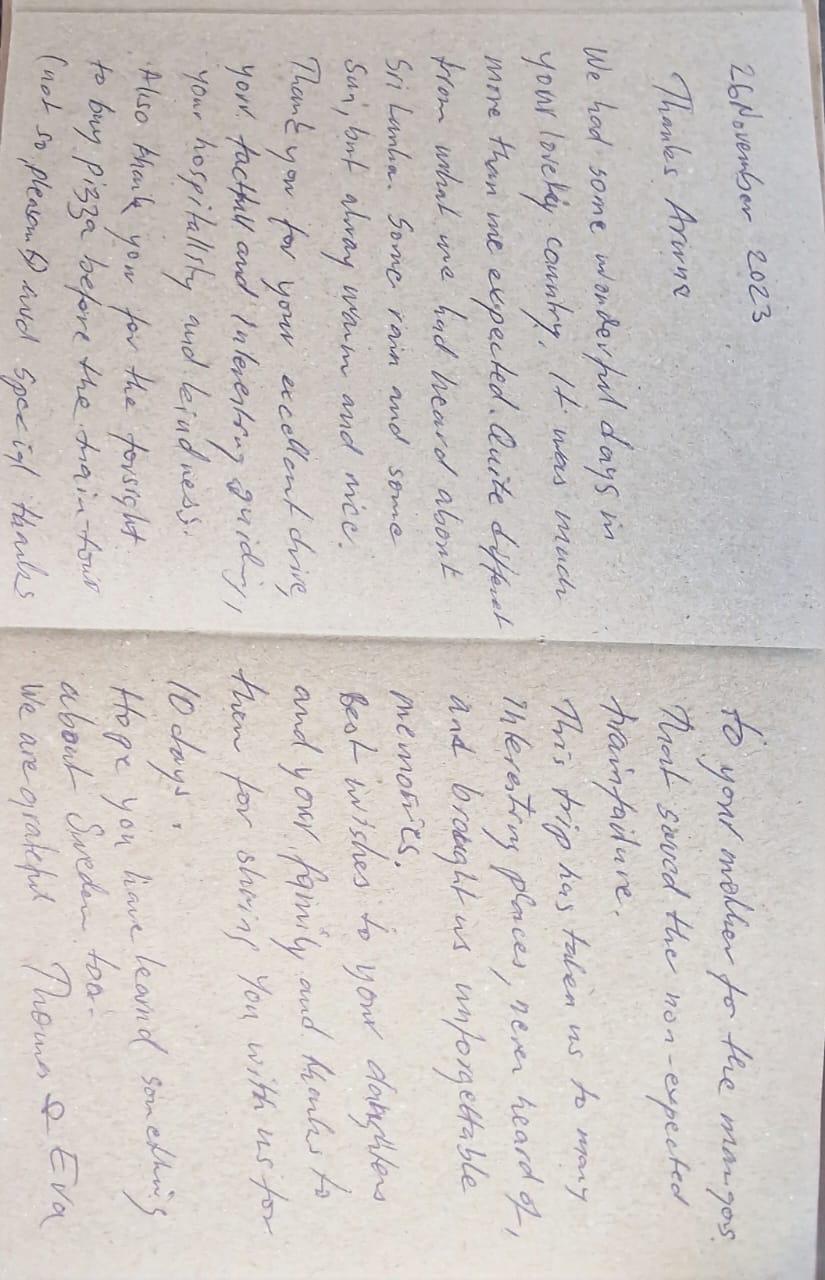 26 November 2023
Thanks Aruna
We had some wonderful days in
your lovely country. It was much
more than we expected. Quite different
from what we had heard about
Sri Lanka. Some rain and some
sun, but alway warm and nice.
Thank you for your excellent drive,
your tactfull and interesting guiding,
your hospitallity and kindness.
Also thank you for the forsight
to buy pizza before the train-tour
(not so pleasant) and special thanks
to your mother for the mangos
that saved the non-expected
trainfailure.
This trip has taken us to many
interesting places, never heard of,
and brought us unforgettable
memories.
Best wishes to your daughters
and your family and thanks to
them for sharing you with us for
10 days.
Hope you have learnd something
about Sweden too.
We are grateful Thomas & Eva